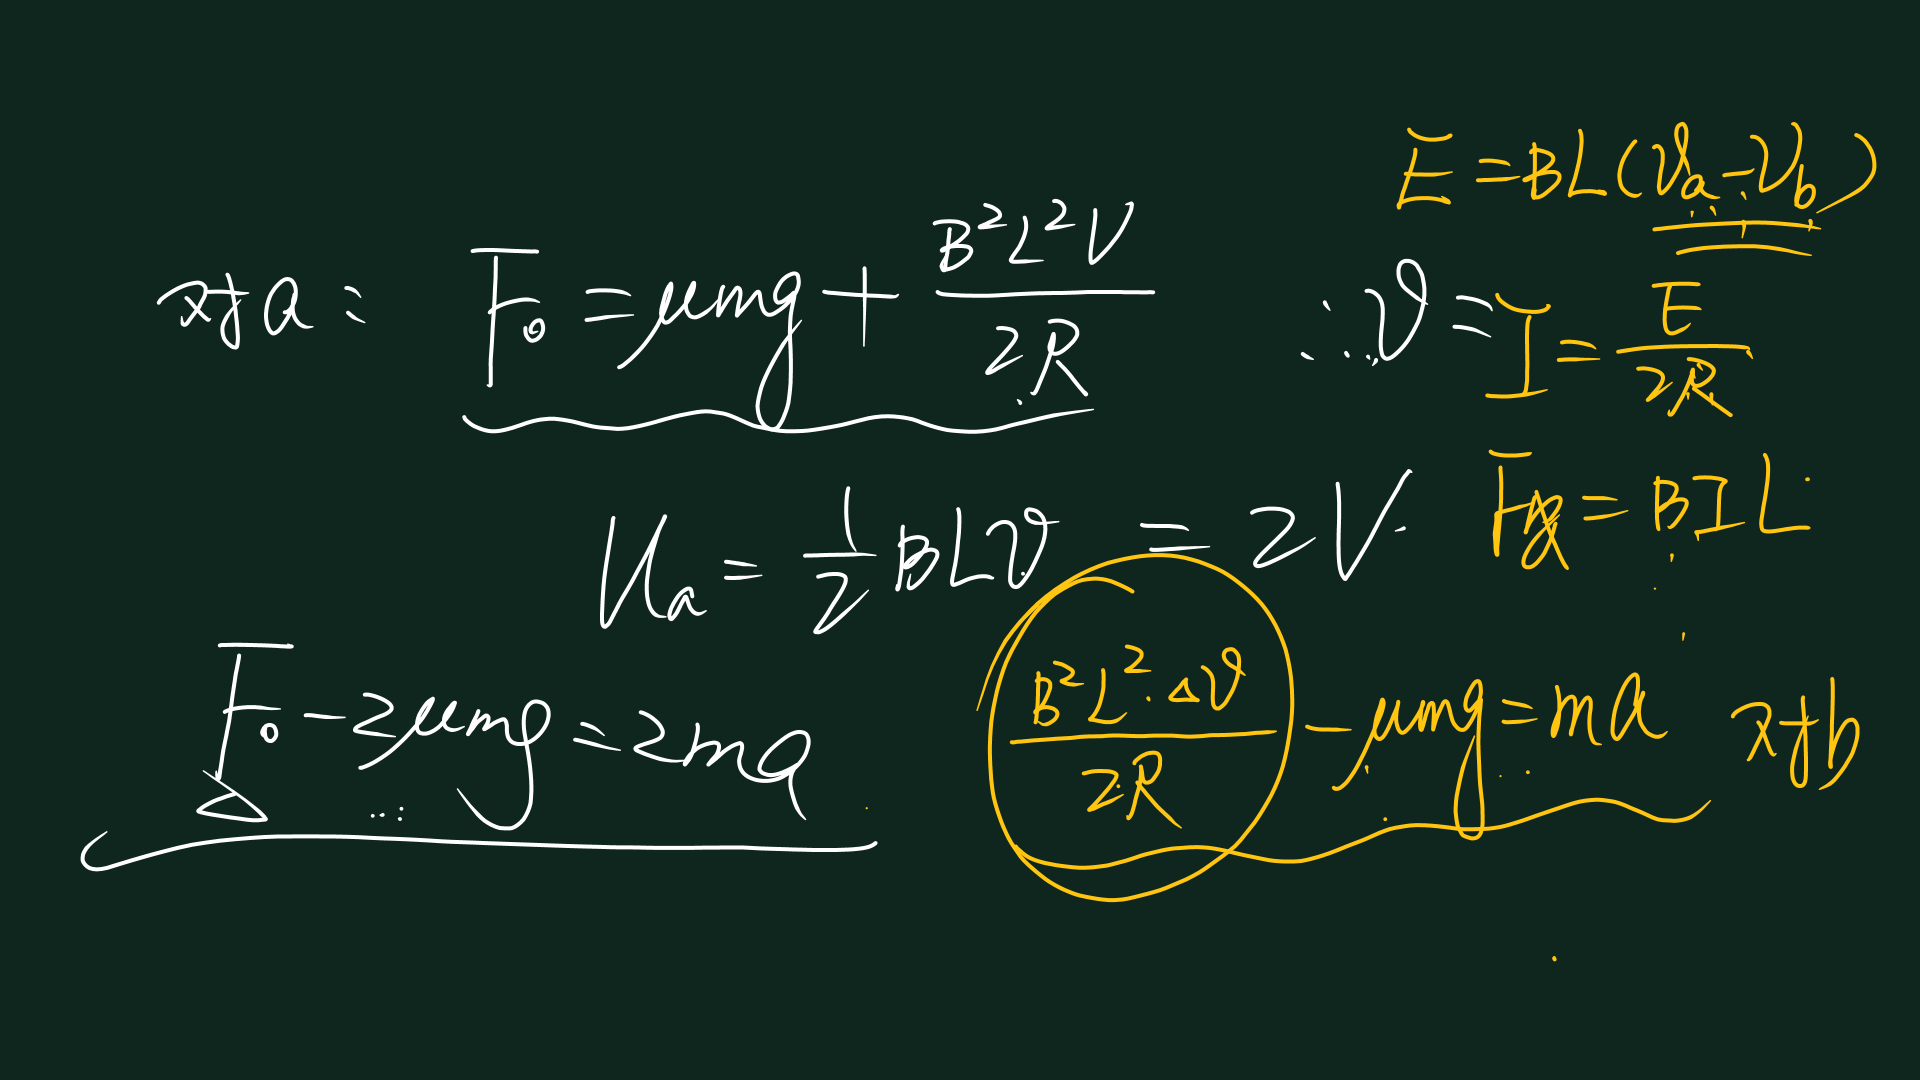 E = BL(v_a - v_b)
对a: F₀ = μmg + B²L²V / 2R
∴ v =
I = E / 2R
F安 = BIL
U_a = 1/2 BLv = 2V
F₀ - 2μmg = 2ma
B²L²·Δv / 2R - μmg = ma 对b